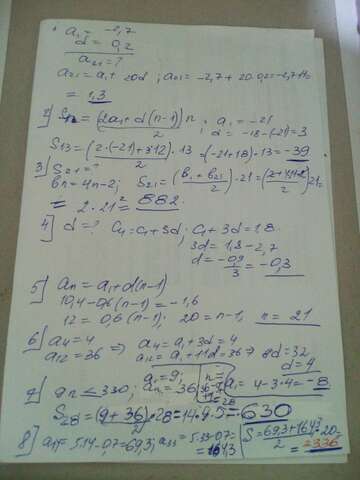 a₁ = -2,7
d = 0,2
a₂₁ = ?
a₂₁ = a₁ + 20d ; a₂₁ = -2,7 + 20·0,2 = -2,7 +
= 1,3
2) (2a₁ + d(n-1))/2 n ; a₁ = -21
d = -18-(-21) = 3
S₁₃ = (2·(-21) + 3·12)/2 · 13 = (-21+18)·13 = -39
3) S₂₁ = ?
bn = 4n-2; S₂₁ = (b₁ + b₂₁)/2 · 21 = 21 =
= 2·21² = 882.
4) d = ? C₄ = C₁ + 3d; C₁ + 3d = 1,8
3d = 1,8 - 2,7
d = -0,9/3 = -0,3
5) an = a₁ + d(n-1)
10,4 - 0,6(n-1) = -1,6
12 = 0,6(n-1); 20 = n-1, n = 21
6) a₄ = 4
a₁₂ = 36 ⇒ a₄ = a₁ + 3d = 4
a₁₂ = a₁ + 11d = 36 8d = 32
d = 4
a₁ = 4 - 3·4 = -8
a₁ = 9,
7) an ≤ 330; an = 36
= 28
S₂₈ = (9 + 36)/2 · 28 = 14·9·5 = 630
8) S = 20 =
2 = 2336